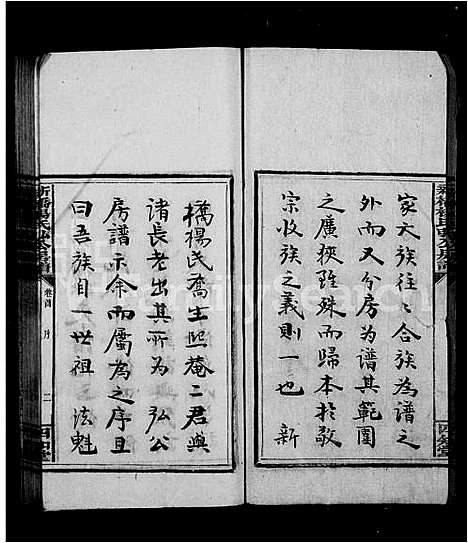 家大族往〻合族為譜之
外而又分房為譜其範圍
之廣狹雖殊而歸本於敬
宗收族之義則一也 新
橋楊氏喬生熙菴二君與
諸長老出其所為 弘公
房譜示余而屬為之序且
曰吾族自一世祖 法魁
卷首 序 二
FamilySearch